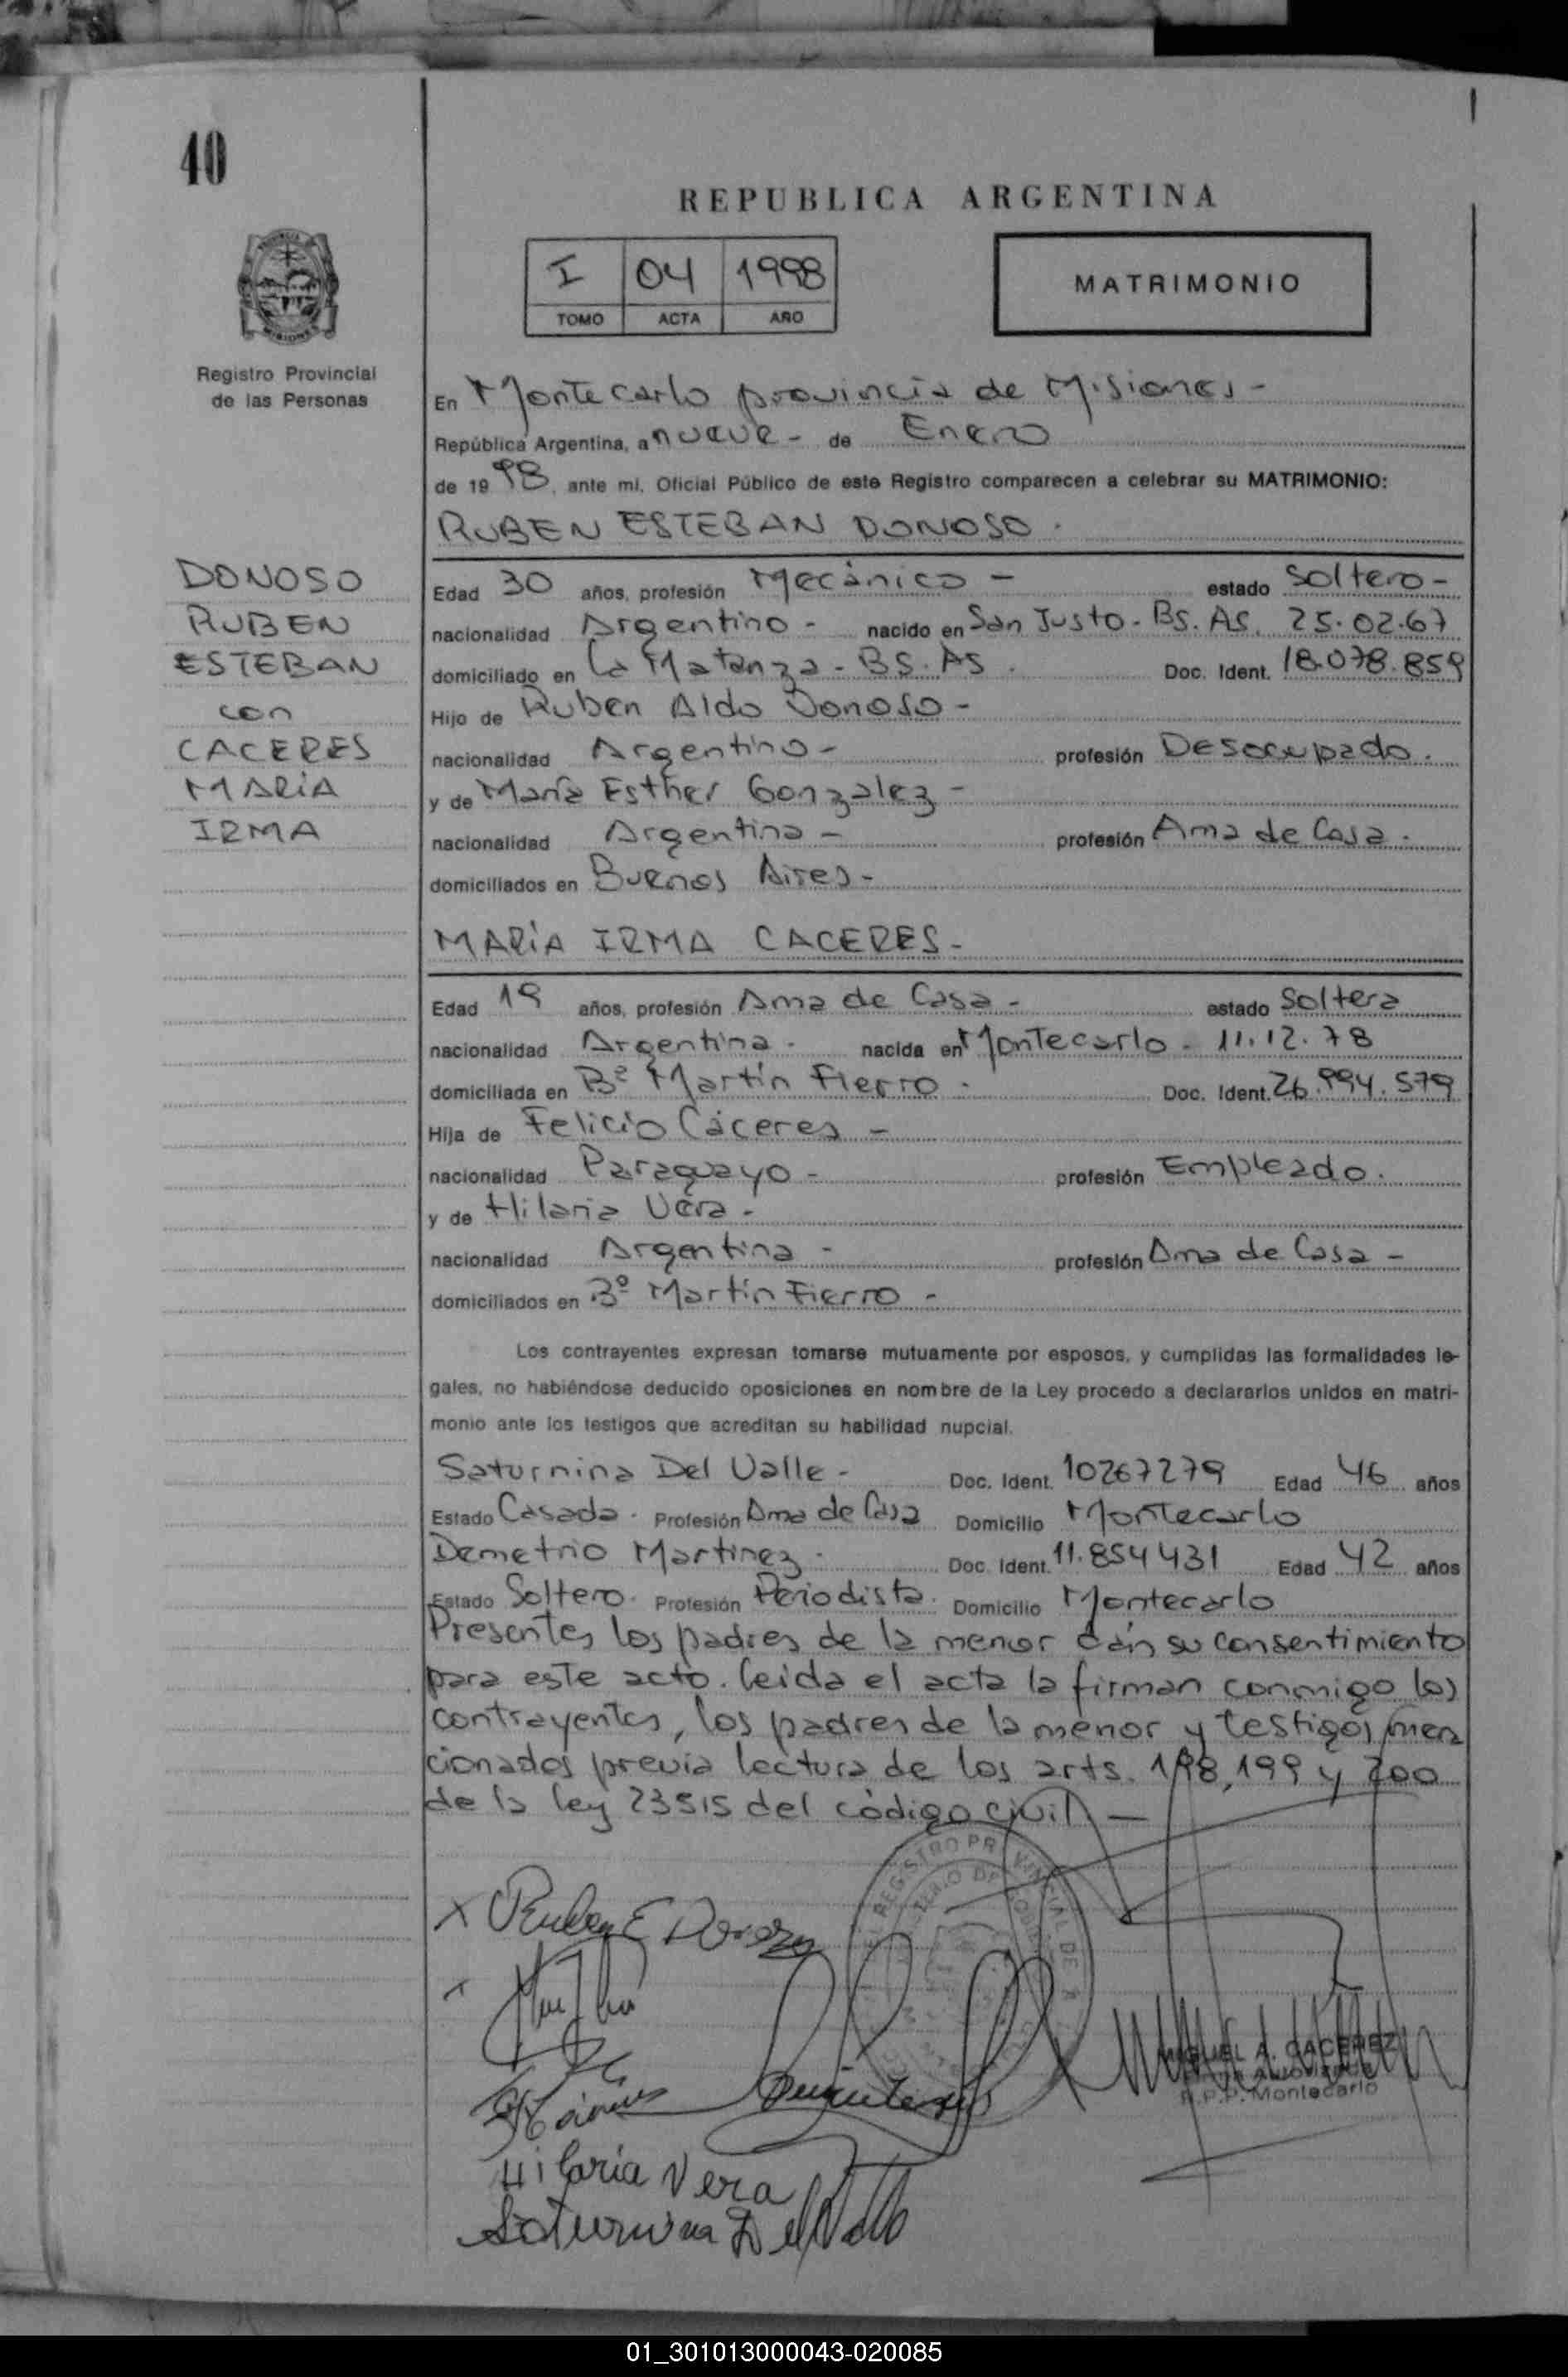 40
REPUBLICA ARGENTINA
I 04 1998
TOMO ACTA AÑO
MATRIMONIO
Registro Provincial
de las Personas
En Montecarlo provincia de Misiones -
República Argentina, a nueve - de Enero
de 19 98, ante mi, Oficial Público de este Registro comparecen a celebrar su MATRIMONIO:
RUBEN ESTEBAN DONOSO.
DONOSO
RUBEN
ESTEBAN
con
CACERES
MARIA
IRMA
Edad 30 años, profesión Mecánico - estado Soltero -
nacionalidad Argentino - nacido en San Justo - Bs. As. 25.02.67
domiciliado en La Matanza - BS. AS. Doc. Ident. 18.078.859
Hijo de Ruben Aldo Donoso -
nacionalidad Argentino - profesión Desocupado.
y de María Esther Gonzalez -
nacionalidad Argentina - profesión Ama de Casa.
domiciliados en Buenos Aires -
MARIA IRMA CACERES -
Edad 19 años, profesión Ama de Casa - estado Soltera
nacionalidad Argentina. nacida en Montecarlo - 11.12.78
domiciliada en Bº Martín Fierro. Doc. Ident. 26.994.579
Hija de Felicio Cáceres -
nacionalidad Paraguayo - profesión Empleado.
y de Hilaria Vera -
nacionalidad Argentina - profesión Ama de Casa -
domiciliados en Bº Martín Fierro -
Los contrayentes expresan tomarse mutuamente por esposos, y cumplidas las formalidades le-
gales, no habiéndose deducido oposiciones en nombre de la Ley procedo a declararlos unidos en matri-
monio ante los testigos que acreditan su habilidad nupcial.
Saturnina Del Valle - Doc. Ident. 10267279 Edad 46 años
Estado Casada. Profesión Ama de Casa Domicilio Montecarlo
Demetrio Martinez. Doc. Ident. 11.854431 Edad 42 años
Estado Soltero. Profesión Periodista. Domicilio Montecarlo
Presentes los padres de la menor dan su consentimiento
para este acto. Leida el acta la firman conmigo los
contrayentes, los padres de la menor y testigos men
cionados previa lectura de los arts. 198, 199 y 200
de la ley 23515 del código civil -
REGISTRO PROVINCIAL DE
X Ruben E Donoso
x
MIGUEL A. CACEREZ
R.P.P. Montecarlo
Hilaria Vera
Saturnina Del Valle
01_301013000043-020085